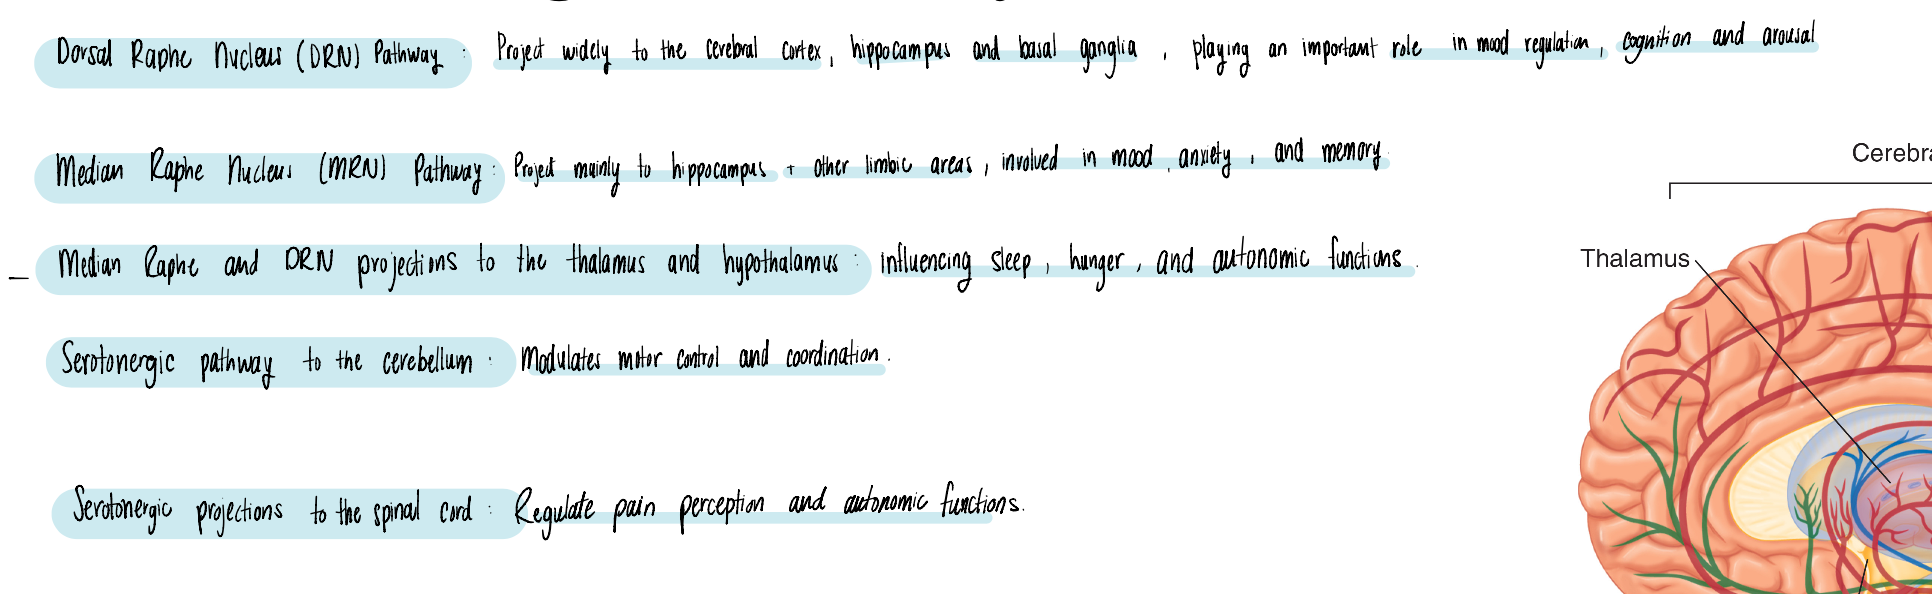 Dorsal Raphe Nucleus (DRN) Pathway : Project widely to the cerebral cortex, hippocampus and basal ganglia, playing an important role in mood regulation, cognition and arousal
Median Raphe Nucleus (MRN) Pathway : Project mainly to hippocampus + other limbic areas, involved in mood, anxiety, and memory
Cerebra
– Median Raphe and DRN projections to the thalamus and hypothalamus : influencing sleep, hunger, and autonomic functions.
Thalamus
Serotonergic pathway to the cerebellum : Modulates motor control and coordination.
Serotonergic projections to the spinal cord : Regulate pain perception and autonomic functions.